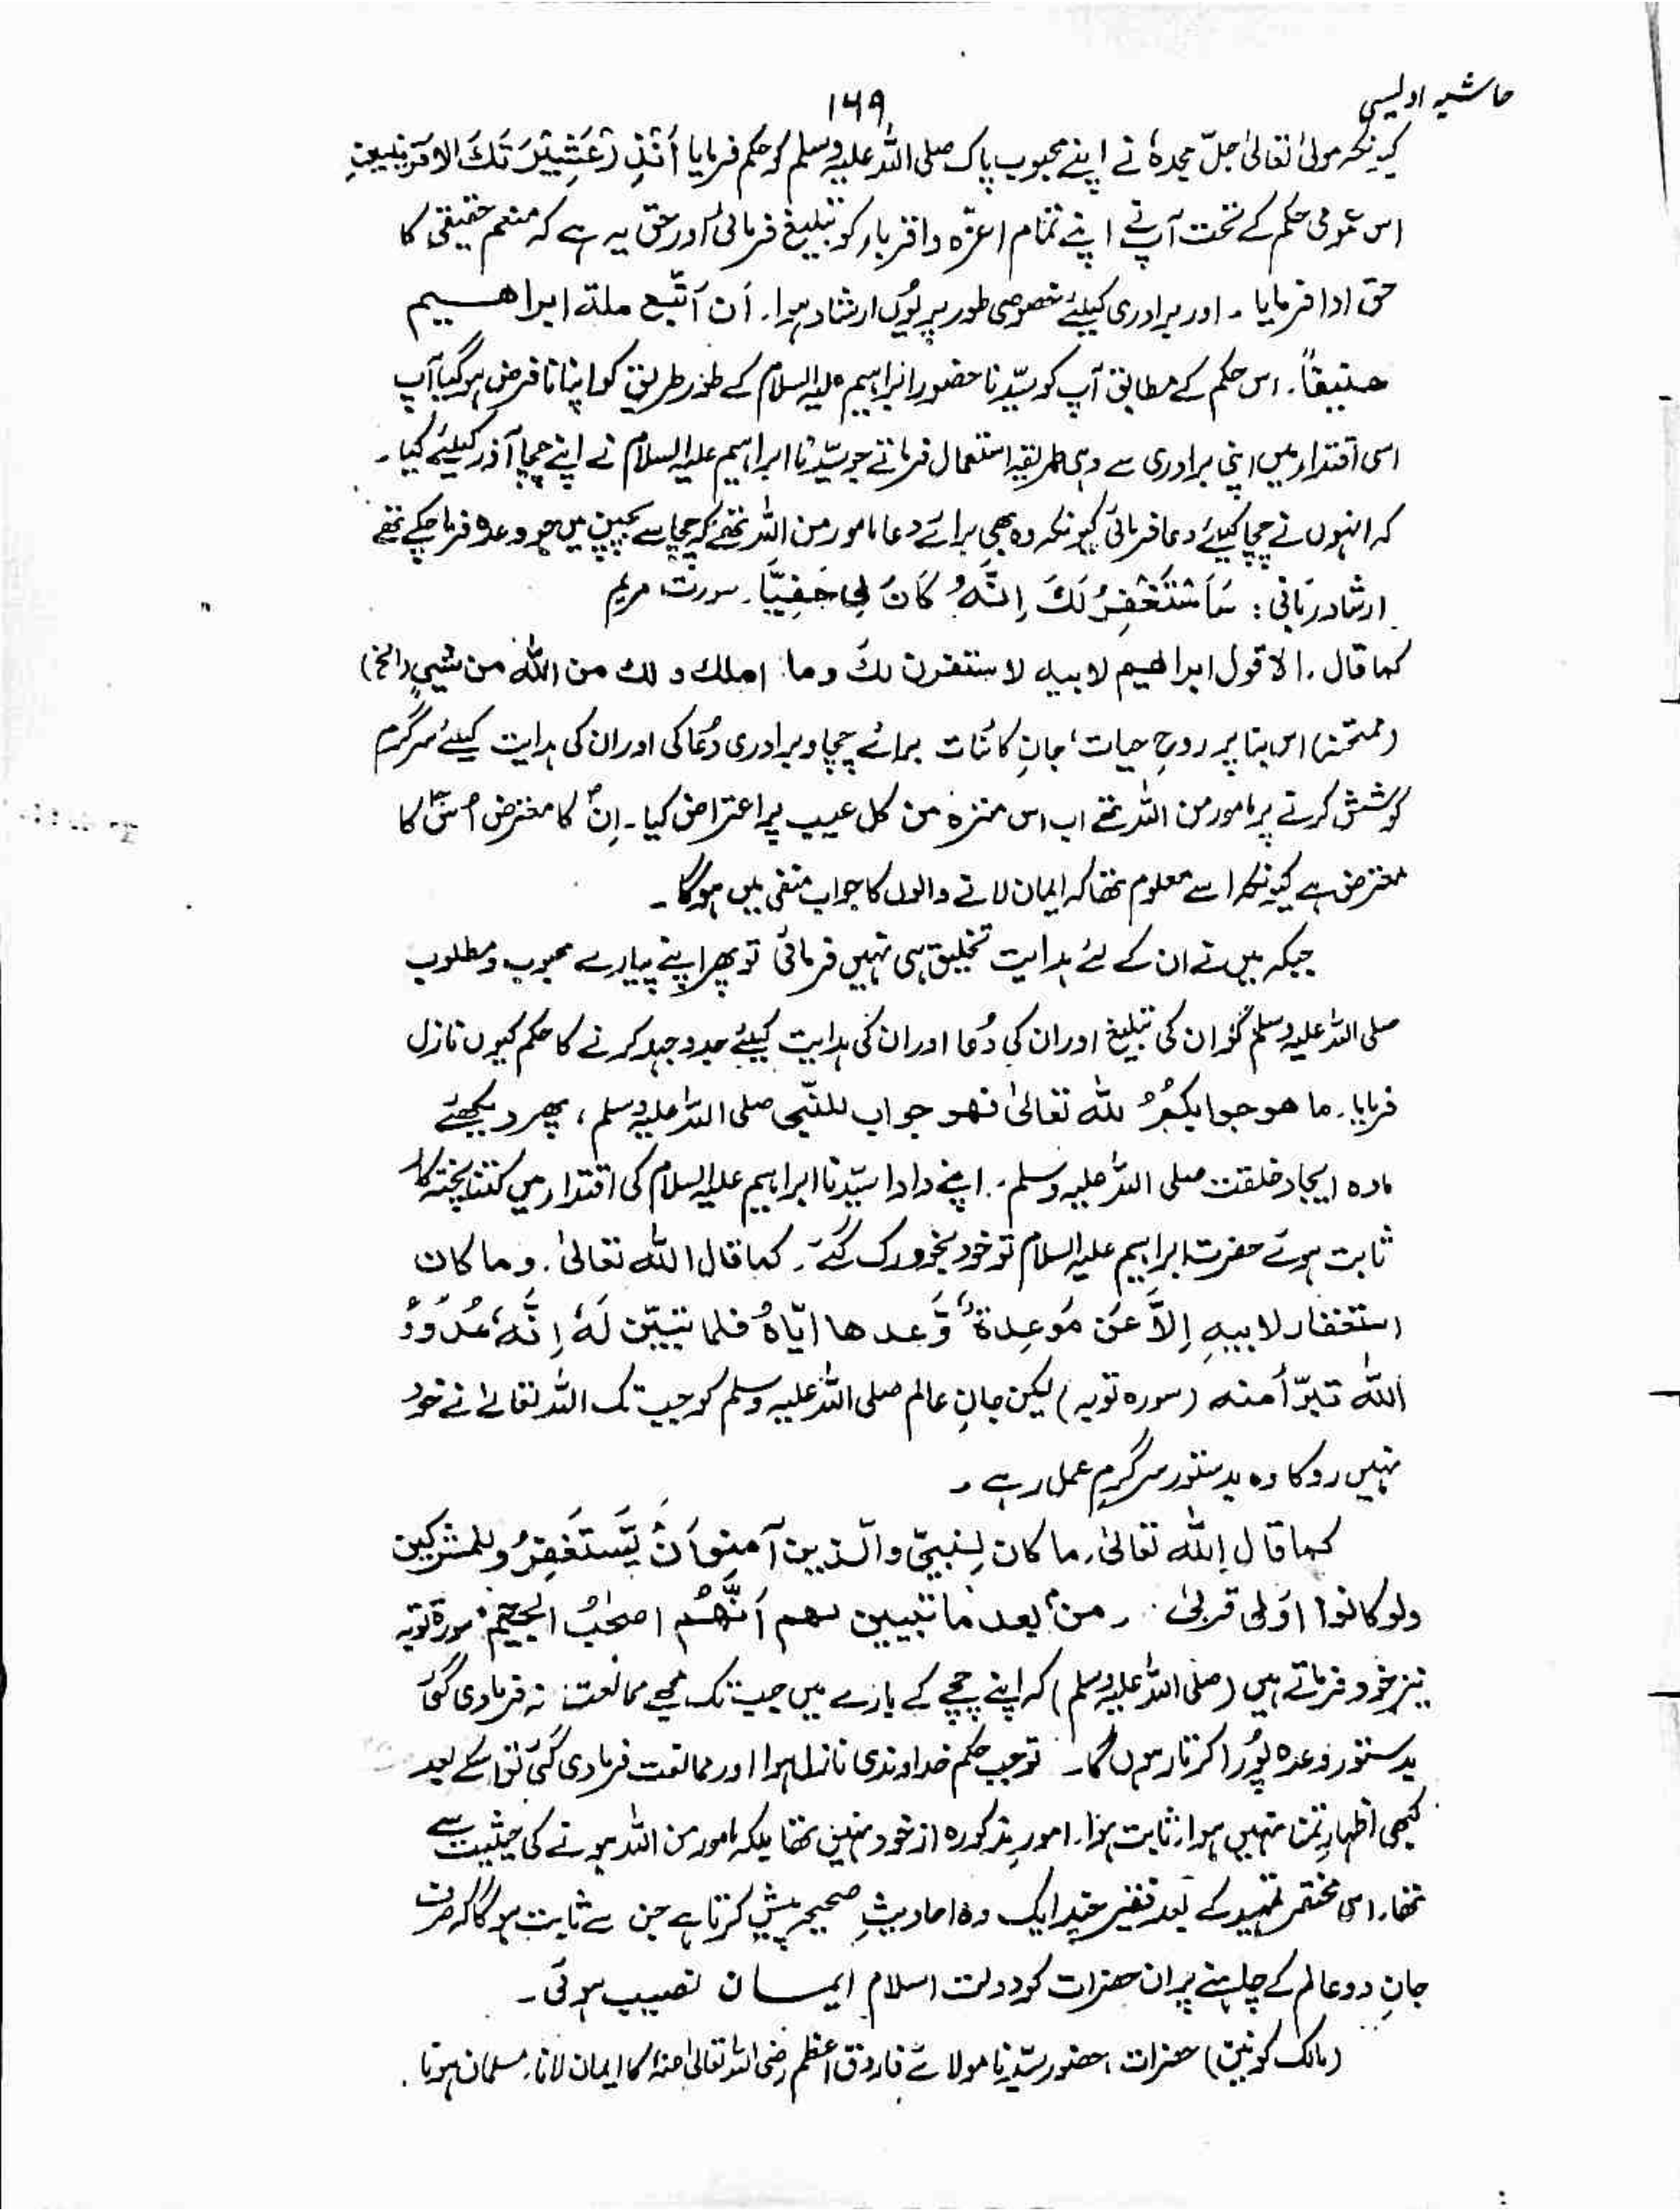 حاشیہ اویسی
۱۶۹
کیونکہ مولیٰ تعالیٰ جلّ مجدہٗ نے اپنے محبوب پاک صلی اللہ علیہ وسلم کو حکم فرمایا اَنْذِرْ عَشِیْرَتَکَ الاقربین
اس عمومی حکم کے تحت آپ نے اپنے تمام اعزّہ واقرباء کو تبلیغ فرمائی اور حق یہ ہے کہ منعم حقیقی کا
حق ادا فرمایا ۔ اور برادری کیلئے خصوصی طور پر یُوں ارشاد ہوا۔ اَن اتَّبع ملة ابراهيم
حنیفاً۔ اس حکم کے مطابق آپ کو سیّدنا حضور ابراہیم علیہ السلام کے طور طریق کو اپنانا فرض ہو گیا آپ
اسی اقتداء میں اپنی برادری سے وہی طریقہ استعمال فرماتے جو سیّدنا ابراہیم علیہ السلام نے اپنے چچا آذر کیلئے کیا ۔
کہ انہوں نے چچا کیلئے دعا فرمائی کیونکہ وہ بھی برائے دعا مامور من اللہ تھے کہ چچا سے بچپن میں جو وعدہ فرما چکے تھے
ارشاد ربّانی : سَاَسْتَغْفِرُ لَکَ اِنَّهُ کَانَ بِی حَفِیَّا۔ سورت مریم
کما قال ۔ الا قول ابراهیم لابیه لاستغفرن لکَ وما املك و لك من اللّٰه من شیءٍ (الخ)
(ممتحنہ) اس بنا پر روحِ حیات، جانِ کائنات برائے چچا و برادری دُعا کی اور ان کی ہدایت کیلئے سرگرم
کوشش کرنے پر مامور من اللہ تھے اب اس منزہ من کل عیب پر اعتراض کیا ۔ اِنؐ کا معترض اُسؐ کا
معترض ہے کیونکہ اسے معلوم تھا کہ ایمان لانے والوں کا جواب منفی میں ہوگا ۔
جبکہ میں نے ان کے لئے ہدایت تخلیق ہی نہیں فرمائی تو پھر اپنے پیارے محبوب و مطلوب
صلی اللہ علیہ وسلم کو ان کی تبلیغ اور ان کی دُعا اور ان کی ہدایت کیلئے جدوجہد کرنے کا حکم کیوں نازل
فرمایا ۔ ما هو جوابکمُ للّٰه تعالیٰ فهو جواب للنّبی صلی اللہ علیہ وسلم ، پھر دیکھئے
مادہ ایجاد خلقت صلی اللہ علیہ وسلم ۔ اپنے دادا سیّدنا ابراہیم علیہ السلام کی اقتداء میں کتنا پختہ کار
ثابت ہوئے حضرت ابراہیم علیہ السلام تو خود بخود رک گئے ۔ کما قال اللّٰه تعالیٰ ۔ وما کان
استغفار لابیهِ اِلَّا عَن مَوعِدةٍ وَّعدها ایّاہُ فلما تبیّن لَهٗ اِنَّهٗ عُدَوُّ
اللّٰه تبرّأ منه (سورہ توبہ) لیکن جانِ عالم صلی اللہ علیہ وسلم کو جب تک اللہ تعالےٰ نے خود
نہیں روکا وہ بدستور سرگرم عمل رہے ۔
کما قال اللّٰه تعالیٰ ۔ ما کان لِنبیّ والّذین آمنوا اَنْ یَّستَغفِرُ وللمشرکین
ولو کانوا اوَلی قربیٰ ۔ من بعد ما تبیین لهم اَنَّهُم اصحٰبُ الجحیم سورۃ توبہ
نیز خود فرماتے ہیں (صلی اللہ علیہ وسلم) کہ اپنے چچے کے بارے میں جب تک مجھے ممانعت نہ فرما دی گئی
بدستور وعدہ پُورا کرتا رہوں گا ۔ تو جب حکم خداوندی نازل ہوا اور ممانعت فرما دی گئی تو اسکے بعد
کبھی اظہارِ تمنّا نہیں ہوا، ثابت ہوا، امورِ مذکورہ از خود نہیں تھا بلکہ مامور من اللہ ہونے کی حیثیت سے
تھا۔ اس مختصر تمہید کے بعد فقیر چند ایک وہ احادیثِ صحیحہ پیش کرتا ہے جن سے ثابت ہو گا کہ صرف
جانِ دوعالم کے چاہنے پر ان حضرات کو دولت اسلام ایمان نصیب ہوئی ۔
(مالک کونین) حضرات ، حضور سیّدنا مولائے فاروق اعظم رضی اللہ تعالیٰ عنہ کا ایمان لانا۔ مسلمان ہونا ۔